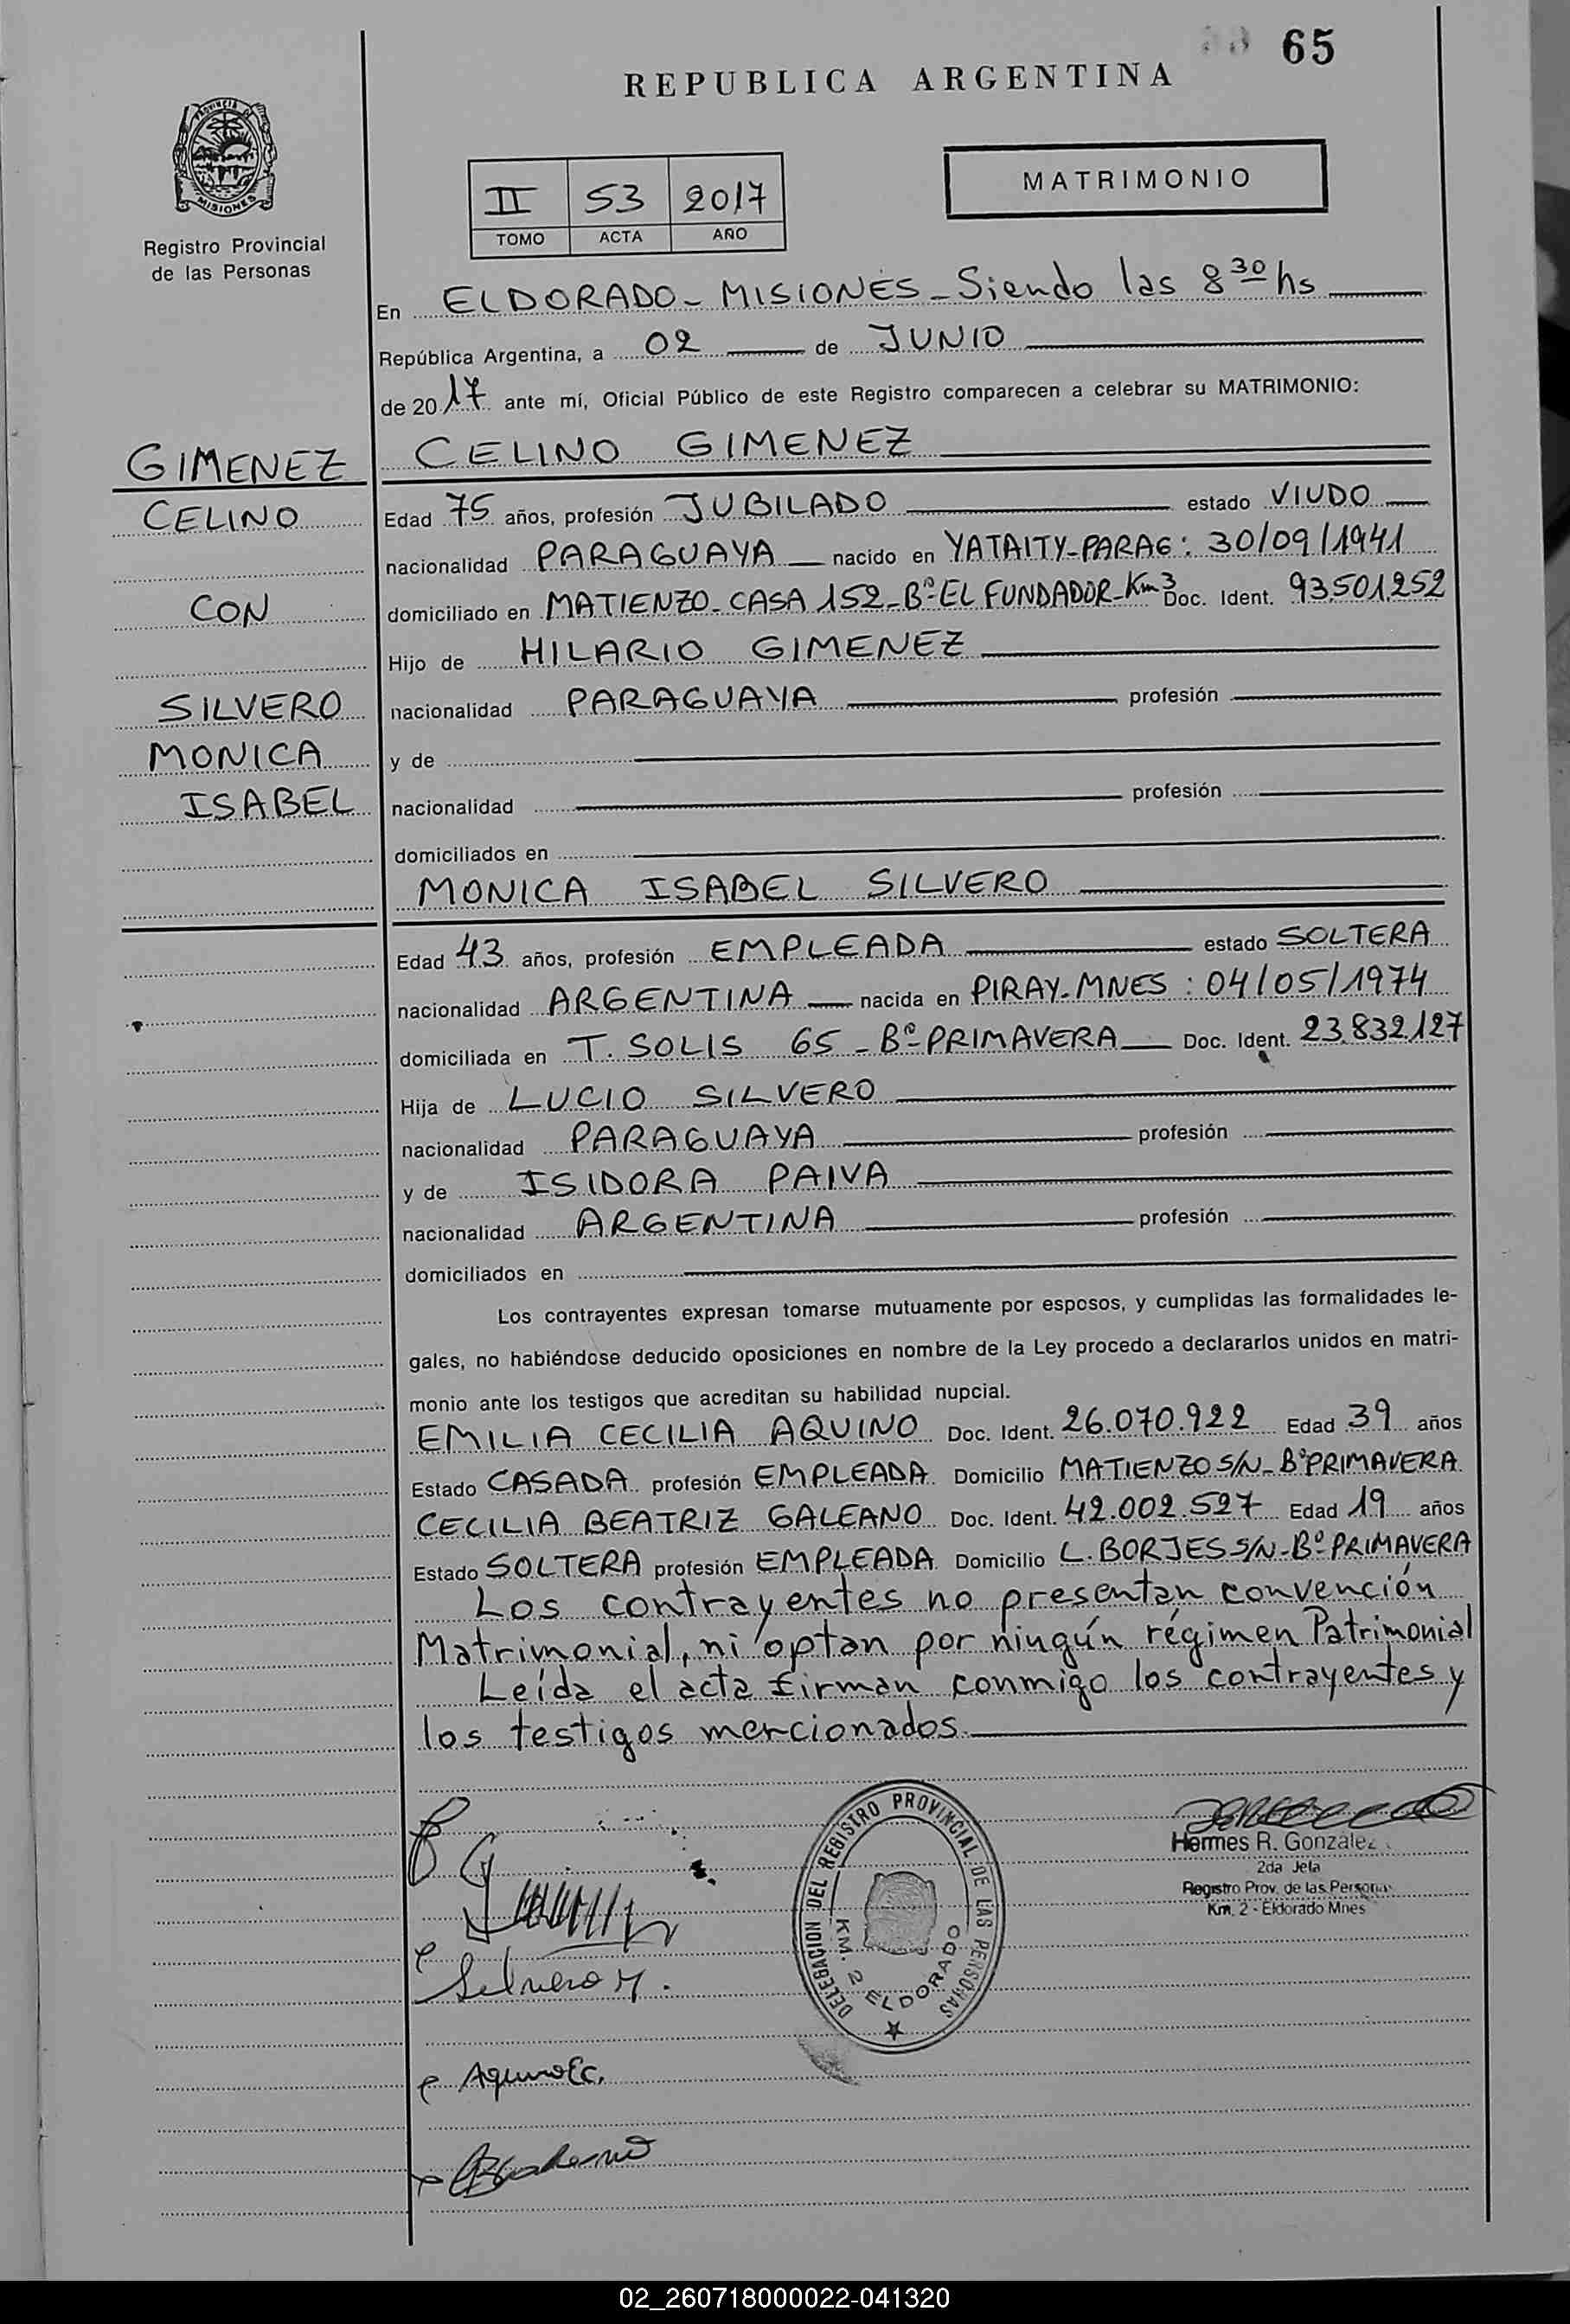 65
REPUBLICA ARGENTINA
PROVINCIA DE
MISIONES
Registro Provincial
de las Personas
II 53 2017
TOMO ACTA AÑO
MATRIMONIO
En ELDORADO - MISIONES - Siendo las 8 30 hs
República Argentina, a 02 de JUNIO
de 2017 ante mí, Oficial Público de este Registro comparecen a celebrar su MATRIMONIO:
GIMENEZ
CELINO
CON
SILVERO
MONICA
ISABEL
CELINO GIMENEZ
Edad 75 años, profesión JUBILADO estado VIUDO
nacionalidad PARAGUAYA nacido en YATAITY-PARAG: 30/09/1941
domiciliado en MATIENZO - CASA 152 - Bº EL FUNDADOR - Km 3 Doc. Ident. 93.501.252
Hijo de HILARIO GIMENEZ
nacionalidad PARAGUAYA profesión
y de
nacionalidad profesión
domiciliados en
MONICA ISABEL SILVERO
Edad 43 años, profesión EMPLEADA estado SOLTERA
nacionalidad ARGENTINA nacida en PIRAY-MNES : 04/05/1974
domiciliada en T. SOLIS 65 - Bº PRIMAVERA Doc. Ident. 23.832.127
Hija de LUCIO SILVERO
nacionalidad PARAGUAYA profesión
y de ISIDORA PAIVA
nacionalidad ARGENTINA profesión
domiciliados en
Los contrayentes expresan tomarse mutuamente por esposos, y cumplidas las formalidades le-
gales, no habiéndose deducido oposiciones en nombre de la Ley procedo a declararlos unidos en matri-
monio ante los testigos que acreditan su habilidad nupcial.
EMILIA CECILIA AQUINO Doc. Ident. 26.070.922 Edad 39 años
Estado CASADA profesión EMPLEADA Domicilio MATIENZO S/N - Bº PRIMAVERA
CECILIA BEATRIZ GALEANO Doc. Ident. 42.002.527 Edad 19 años
Estado SOLTERA profesión EMPLEADA Domicilio L. BORJES S/N - Bº PRIMAVERA
Los contrayentes no presentan convención
Matrimonial, ni optan por ningún régimen Patrimonial
Leída el acta firman conmigo los contrayentes y
los testigos mencionados.
Silvero M.
Aquino Ec.
DELEGACION DEL REGISTRO PROVINCIAL DE LAS PERSONAS
KM. 2 ELDORADO
Hermes R. Gonzalez
2da Jefa
Registro Prov. de las Personas
Km. 2 - Eldorado Mnes
02_260718000022-041320